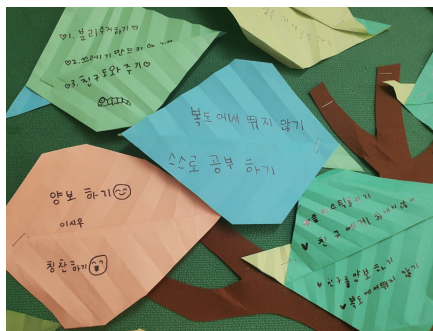 ♡1. 분리수거하기♡
♡2. 쓰레기 만드지
♡3. 친구도와주기♡
복도에서 뛰지 않기
스스로 공부 하기
양보 하기
이시우
칭찬하기
♥ 친구에게
♥ 친구를양보하기
♥ 복도에서뛰지 않기